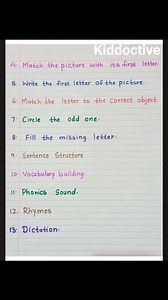 Kiddoctive
4. Match the picture with its first letter
5. Write the first letter of the picture.
6. Match the letter to the correct object.
7. Circle the odd one.
8. Fill the missing letter.
9. Sentence Structure
10. Vocabulary building
11. Phonics Sound.
12. Rhymes
13. Dictation.